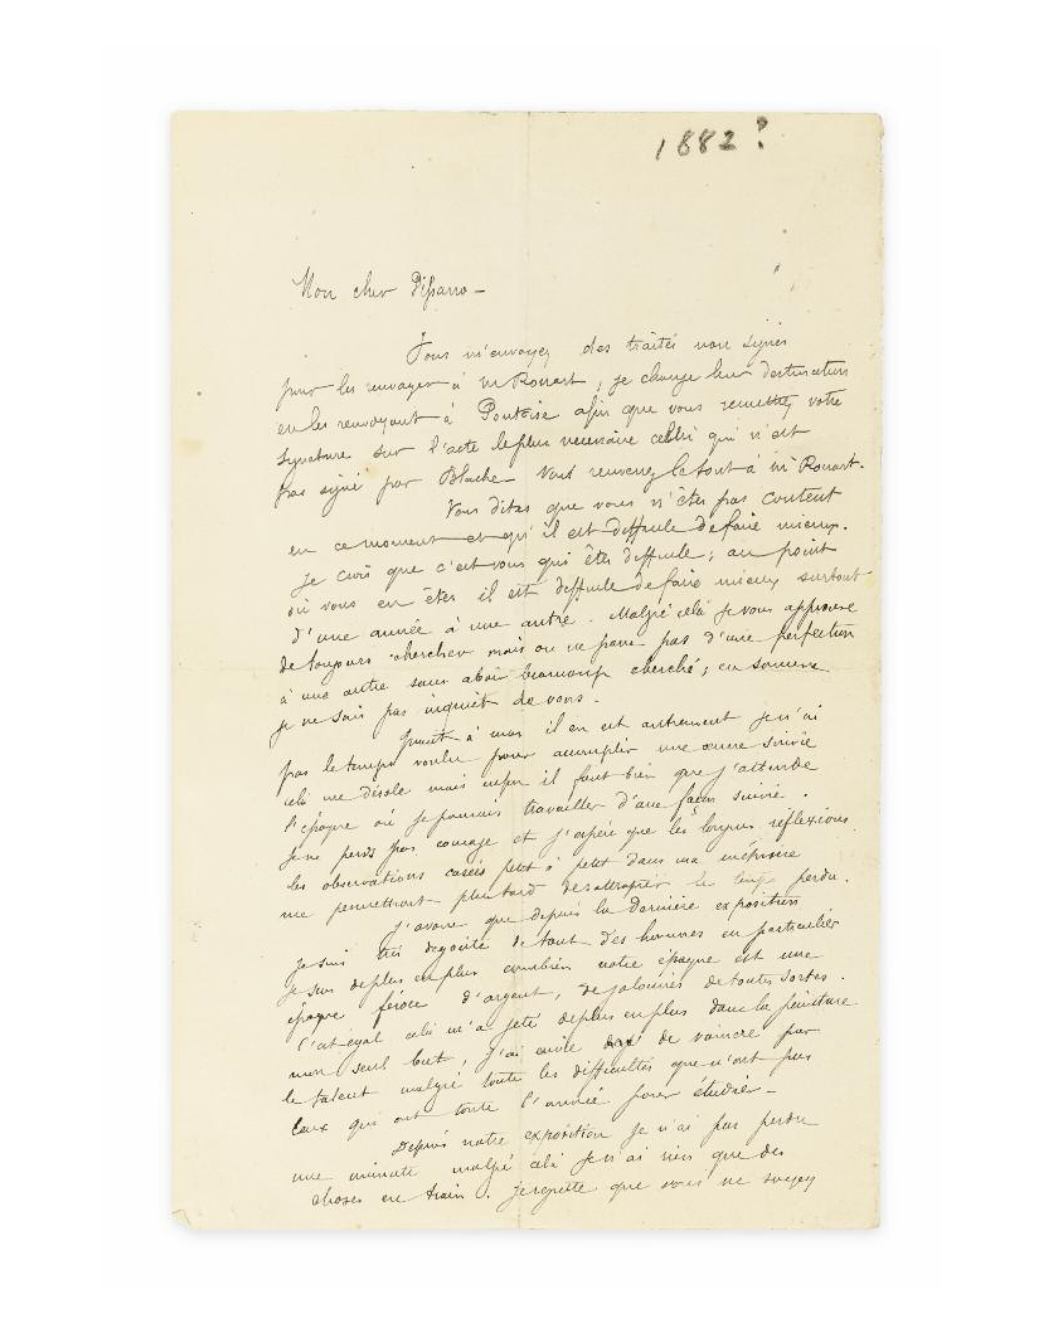 1882?
Mon cher Pissarro -
Vous m'envoyez des traités non signés
pour les renvoyer à Mr Rouart, je change leur destination
en les renvoyant à Pontoise afin que vous remettez votre
signature sur l'acte le plus nécessaire celui qui n'est
pas signé par Blache - Vous renverrez le tout à Mr Rouart.
Vous dites que vous n'êtes pas content
en ce moment et qu'il est difficile de faire mieux.
Je crois que c'est vous qui êtes difficile ; au point
où vous en êtes il est difficile de faire mieux surtout
d'une année à une autre. Malgré celà je vous approuve
de toujours chercher mais on ne passe pas d'une perfection
à une autre sans avoir beaucoup cherché ; en somme
je ne suis pas inquiet de vous.
Quant à moi il en est autrement je n'ai
pas le temps voulu pour accomplir une œuvre suivie
celà me désole mais enfin il faut bien que j'attende
l'époque où je pourrais travailler d'une façon suivie.
Je ne perds pas courage et j'espère que les longues réflexions
les observations casées petit à petit dans ma mémoire
me permettront plus tard de rattraper le temps perdu.
J'avoue que depuis la dernière exposition
je suis très dégoûté de tout des hommes en particulier
je vois de plus en plus combien notre époque est une
époque féroce d'argent, de jalousies de toutes sortes.
C'est égal celà m'a jeté de plus en plus dans la peinture
mon seul but, j'ai envie de vaincre par
le talent malgré toute les difficultés que n'ont pas
ceux qui ont toute l'année pour étudier -
Depuis notre exposition je n'ai pas perdu
une minute malgré celà je n'ai rien que des
choses en train. Je regrette que vous ne soyez